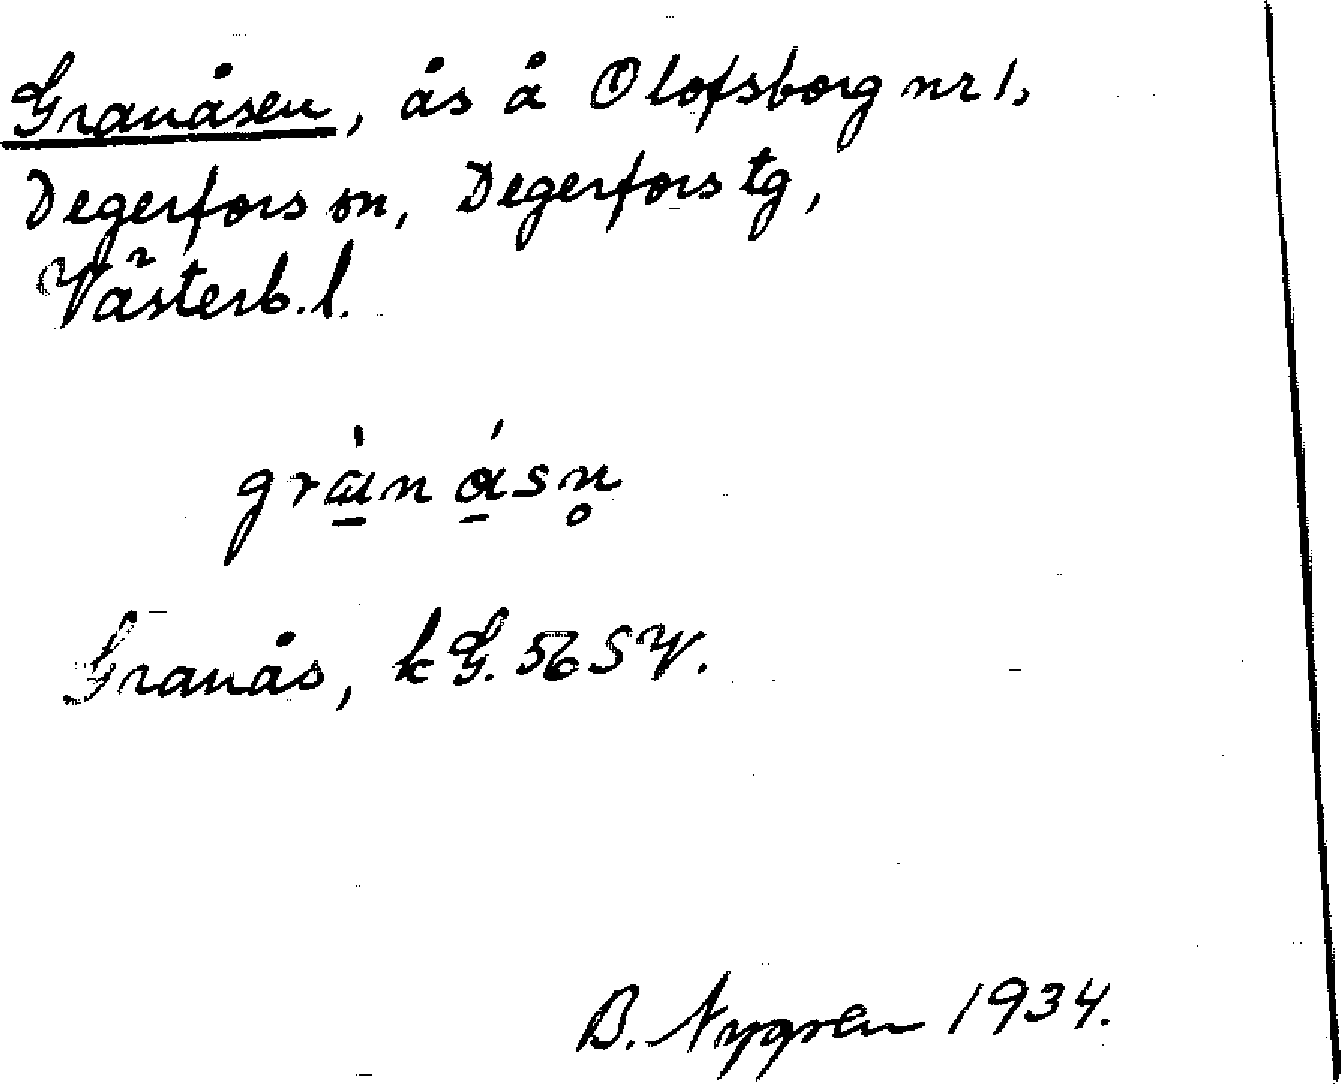 Granåsen, ås å Olofsborg nr 1,
Degerfors sn, Degerfors tg,
Västerb. l.
grànásn̥
Granås, kG. 56 SV.
B. Nygren 1934.